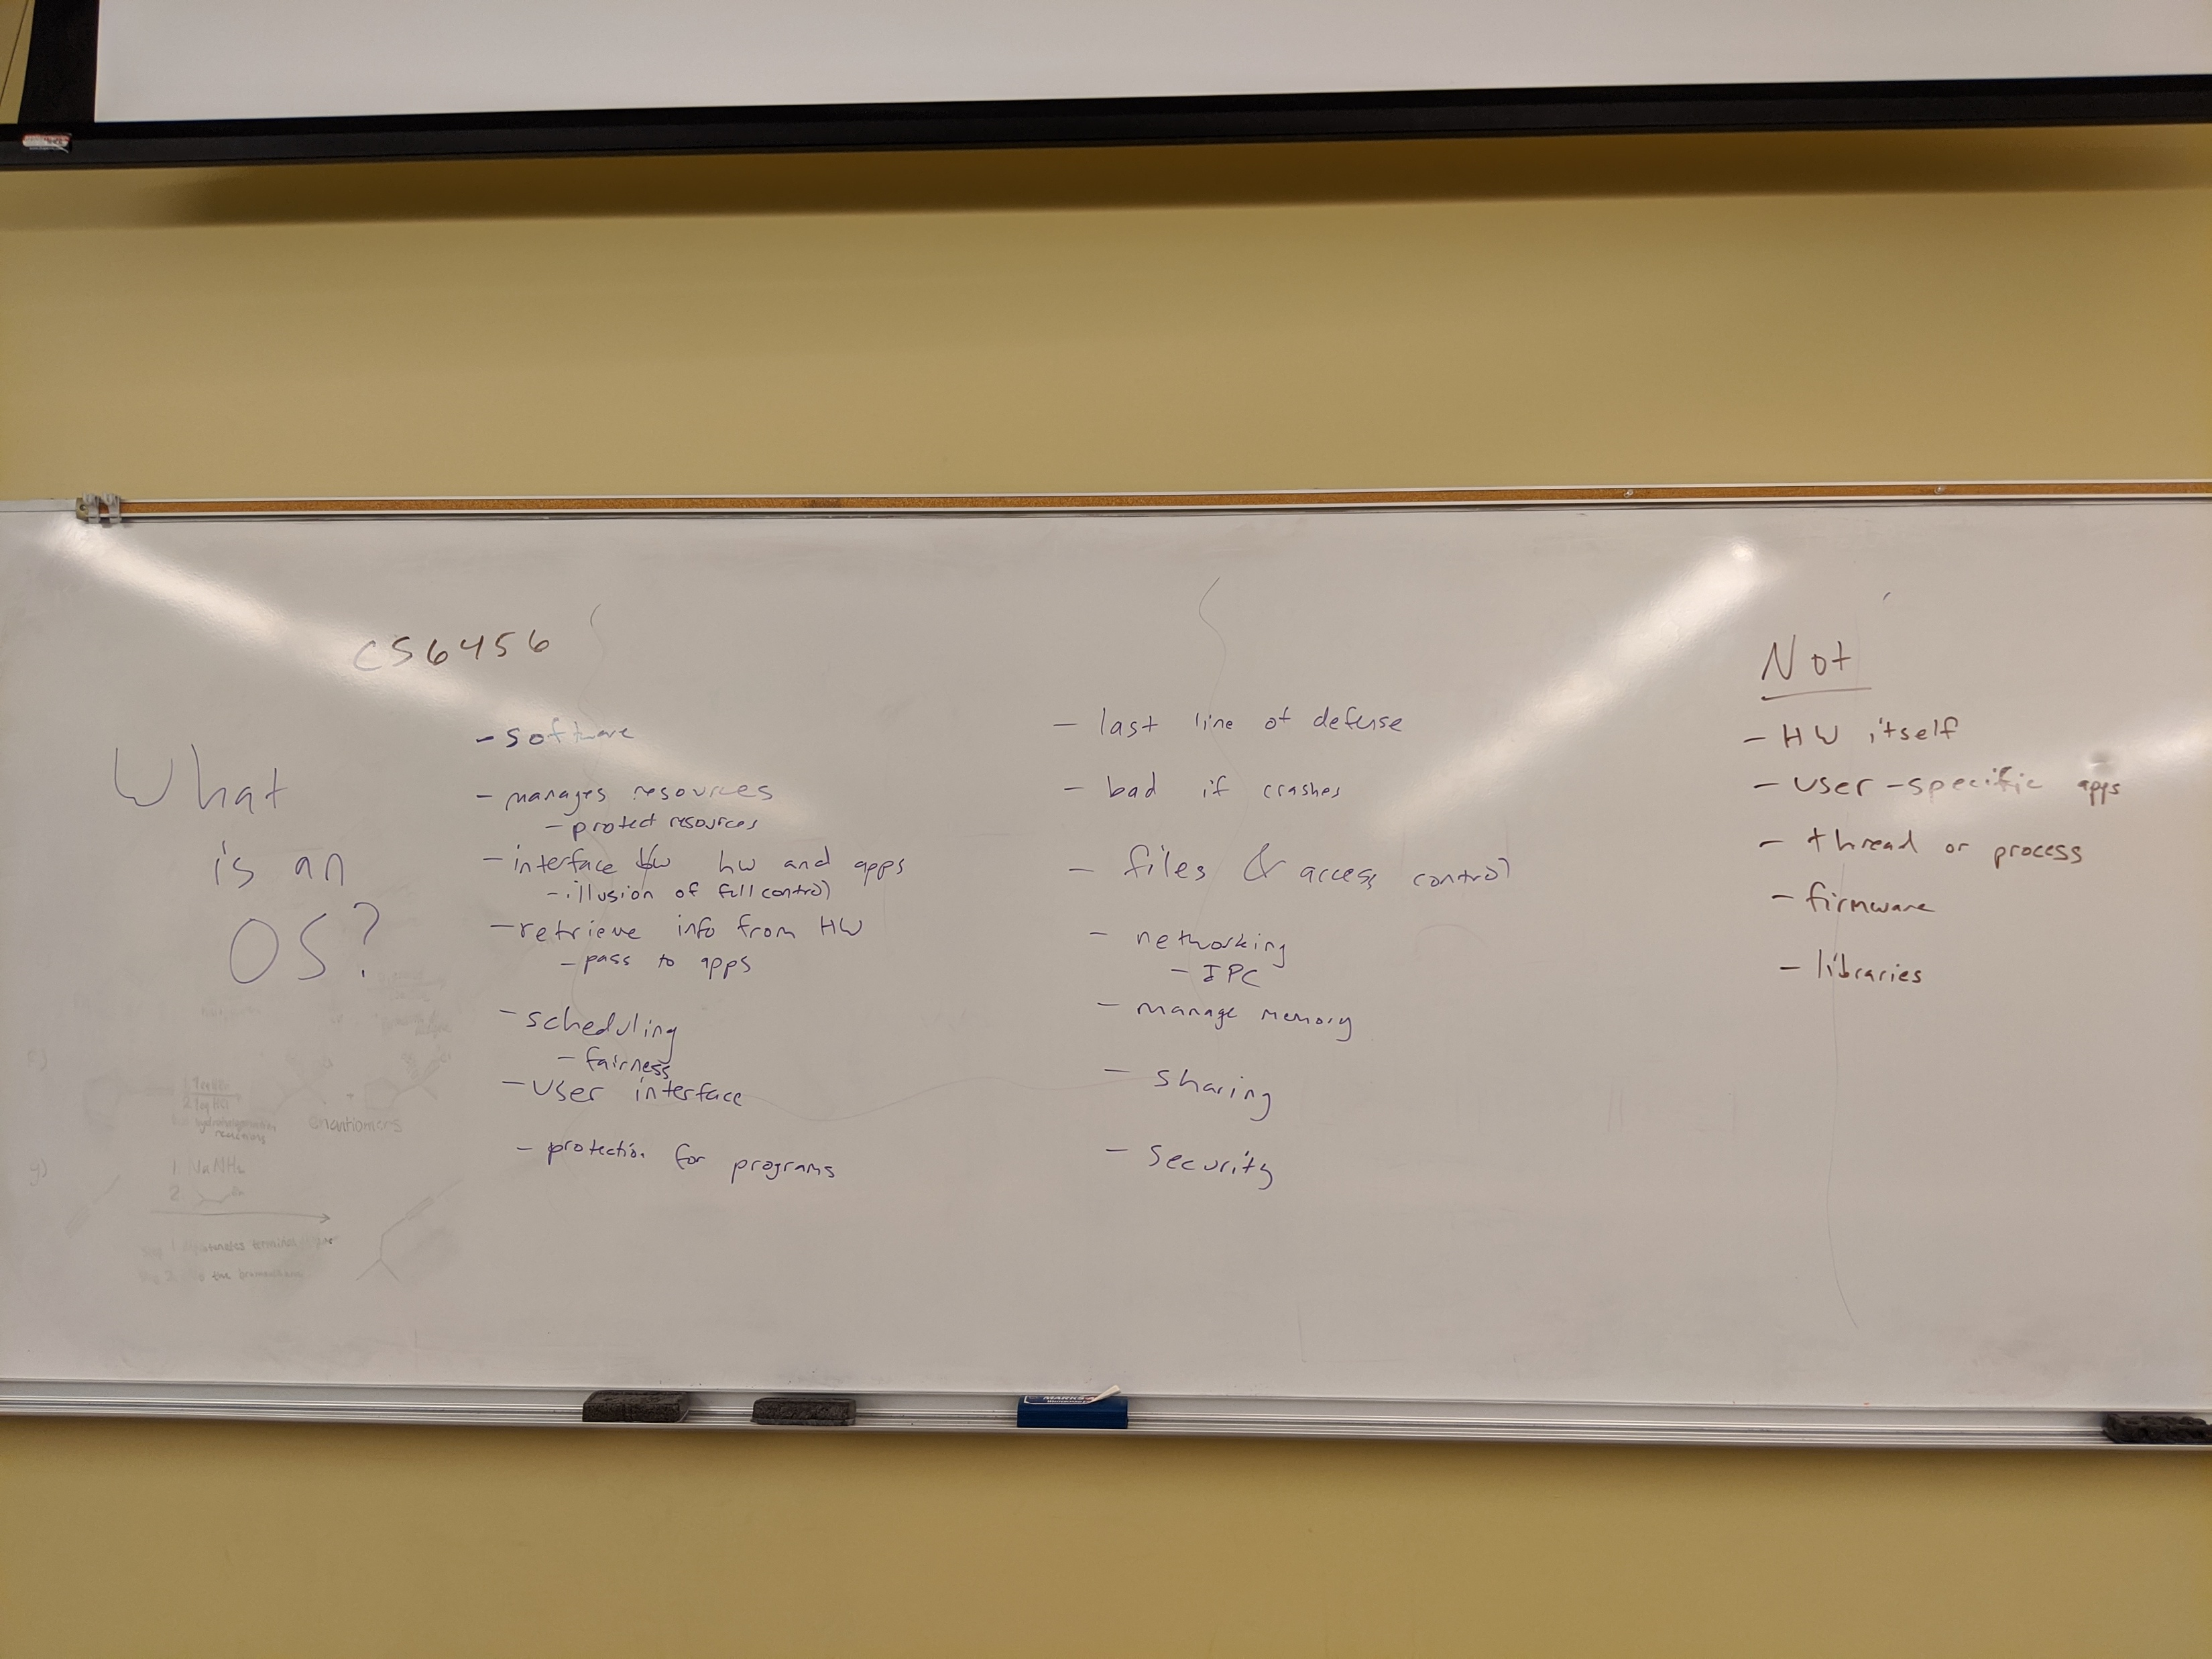 CS6456
What
is an
OS?
- software
- manages resources
- protect resources
- interface b/w hw and apps
- illusion of full control
- retrieve info from HW
- pass to apps
- scheduling
- fairness
- user interface
- protection for programs
- last line of defense
- bad if crashes
- files & access control
- networking
- IPC
- manage memory
- sharing
- security
Not
- HW itself
- user-specific apps
- thread or process
- firmware
- libraries
enantiomers
g)
1. NaNH₂
2.